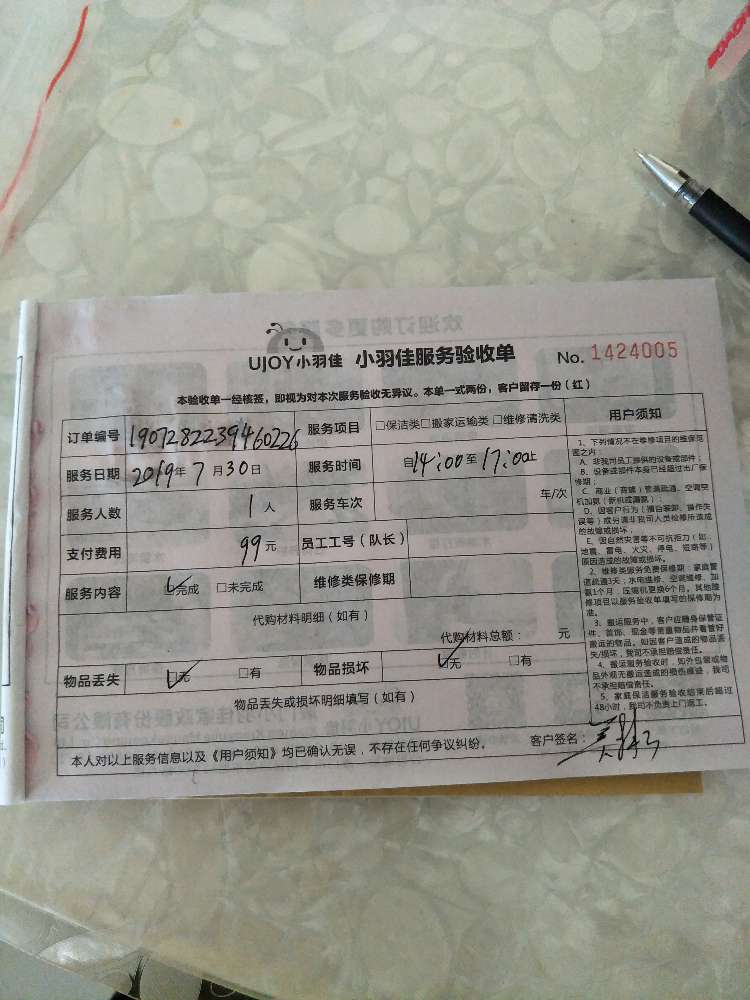 UJOY小羽佳 小羽佳服务验收单 No. 1424005
本验收单一经核签，即视为对本次服务验收无异议。本单一式两份，客户留存一份（红）
订单编号 1907282239460226 服务项目 □保洁类□搬家运输类□维修清洗类
服务日期 2019年7月30日 服务时间 自14:00至17:00止
服务人数 1人 服务车次 车/次
支付费用 99元 员工工号（队长）
服务内容 ☑完成 □未完成 维修类保修期
代购材料明细（如有）
代购材料总额： 元
物品丢失 ☑无 □有 物品损坏 ☑无 □有
物品丢失或损坏明细填写（如有）
本人对以上服务信息以及《用户须知》均已确认无误，不存在任何争议纠纷。 客户签名：
用户须知
1、下列情况不在维修项目的维保范
围之内：
A、非我司员工提供的设备或部件；
B、设备或部件本身已经超过出厂保
修期；
C、商业（商铺）管道疏通、空调空
机加氟（新机或漏氟）；
D、因客户行为（擅自装卸、操作失
误等）或另请非我司人员检修所造成
的故障或损坏；
E、因自然灾害等不可抗拒力（如：
地震、雷电、火灾、停电、短路等）
原因造成的故障或损坏。
2、维修类服务免费保修期：家庭管
道疏通3天；水电维修、空调维修、加
氟1个月；压缩机更换6个月。其他维
修项目以服务验收单填写的保修期为
准。
3、搬运服务中，客户应随身保管证
件、首饰、现金等贵重物品并看管好
搬运的物品。如因客户造成的物品丢
失/损坏，我司不承担赔偿责任。
4、搬运服务验收时，如外包装或物
品外观无搬运造成的损伤痕迹，我司
不承担赔偿责任。
5、家庭保洁服务验收结束后超过
48小时，我司不负责上门返工。